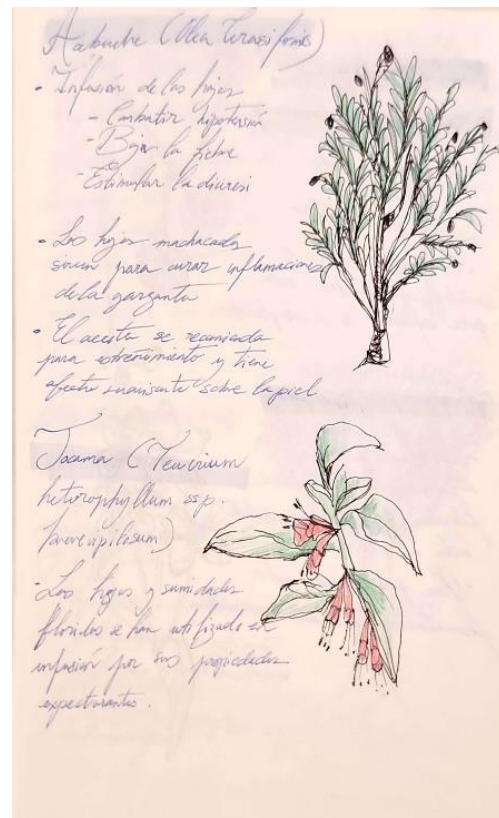 Acebuche (Olea Cerasiformis)
• Infusión de las hojas
- Combatir hipotensión
- Bajar la fiebre
- Estimular la diuresi
• Las hojas machacadas
sirven para curar inflamaciones
de la garganta
• El aceite se recomienda
para estreñimiento y tiene
efecto suavisante sobre la piel
Jocama (Teucrium
heterophyllum ssp.
brevipilosum)
- Las hojas y sumidades
floridas se han utilizado en
infusión por sus propiedades
expectorantes.